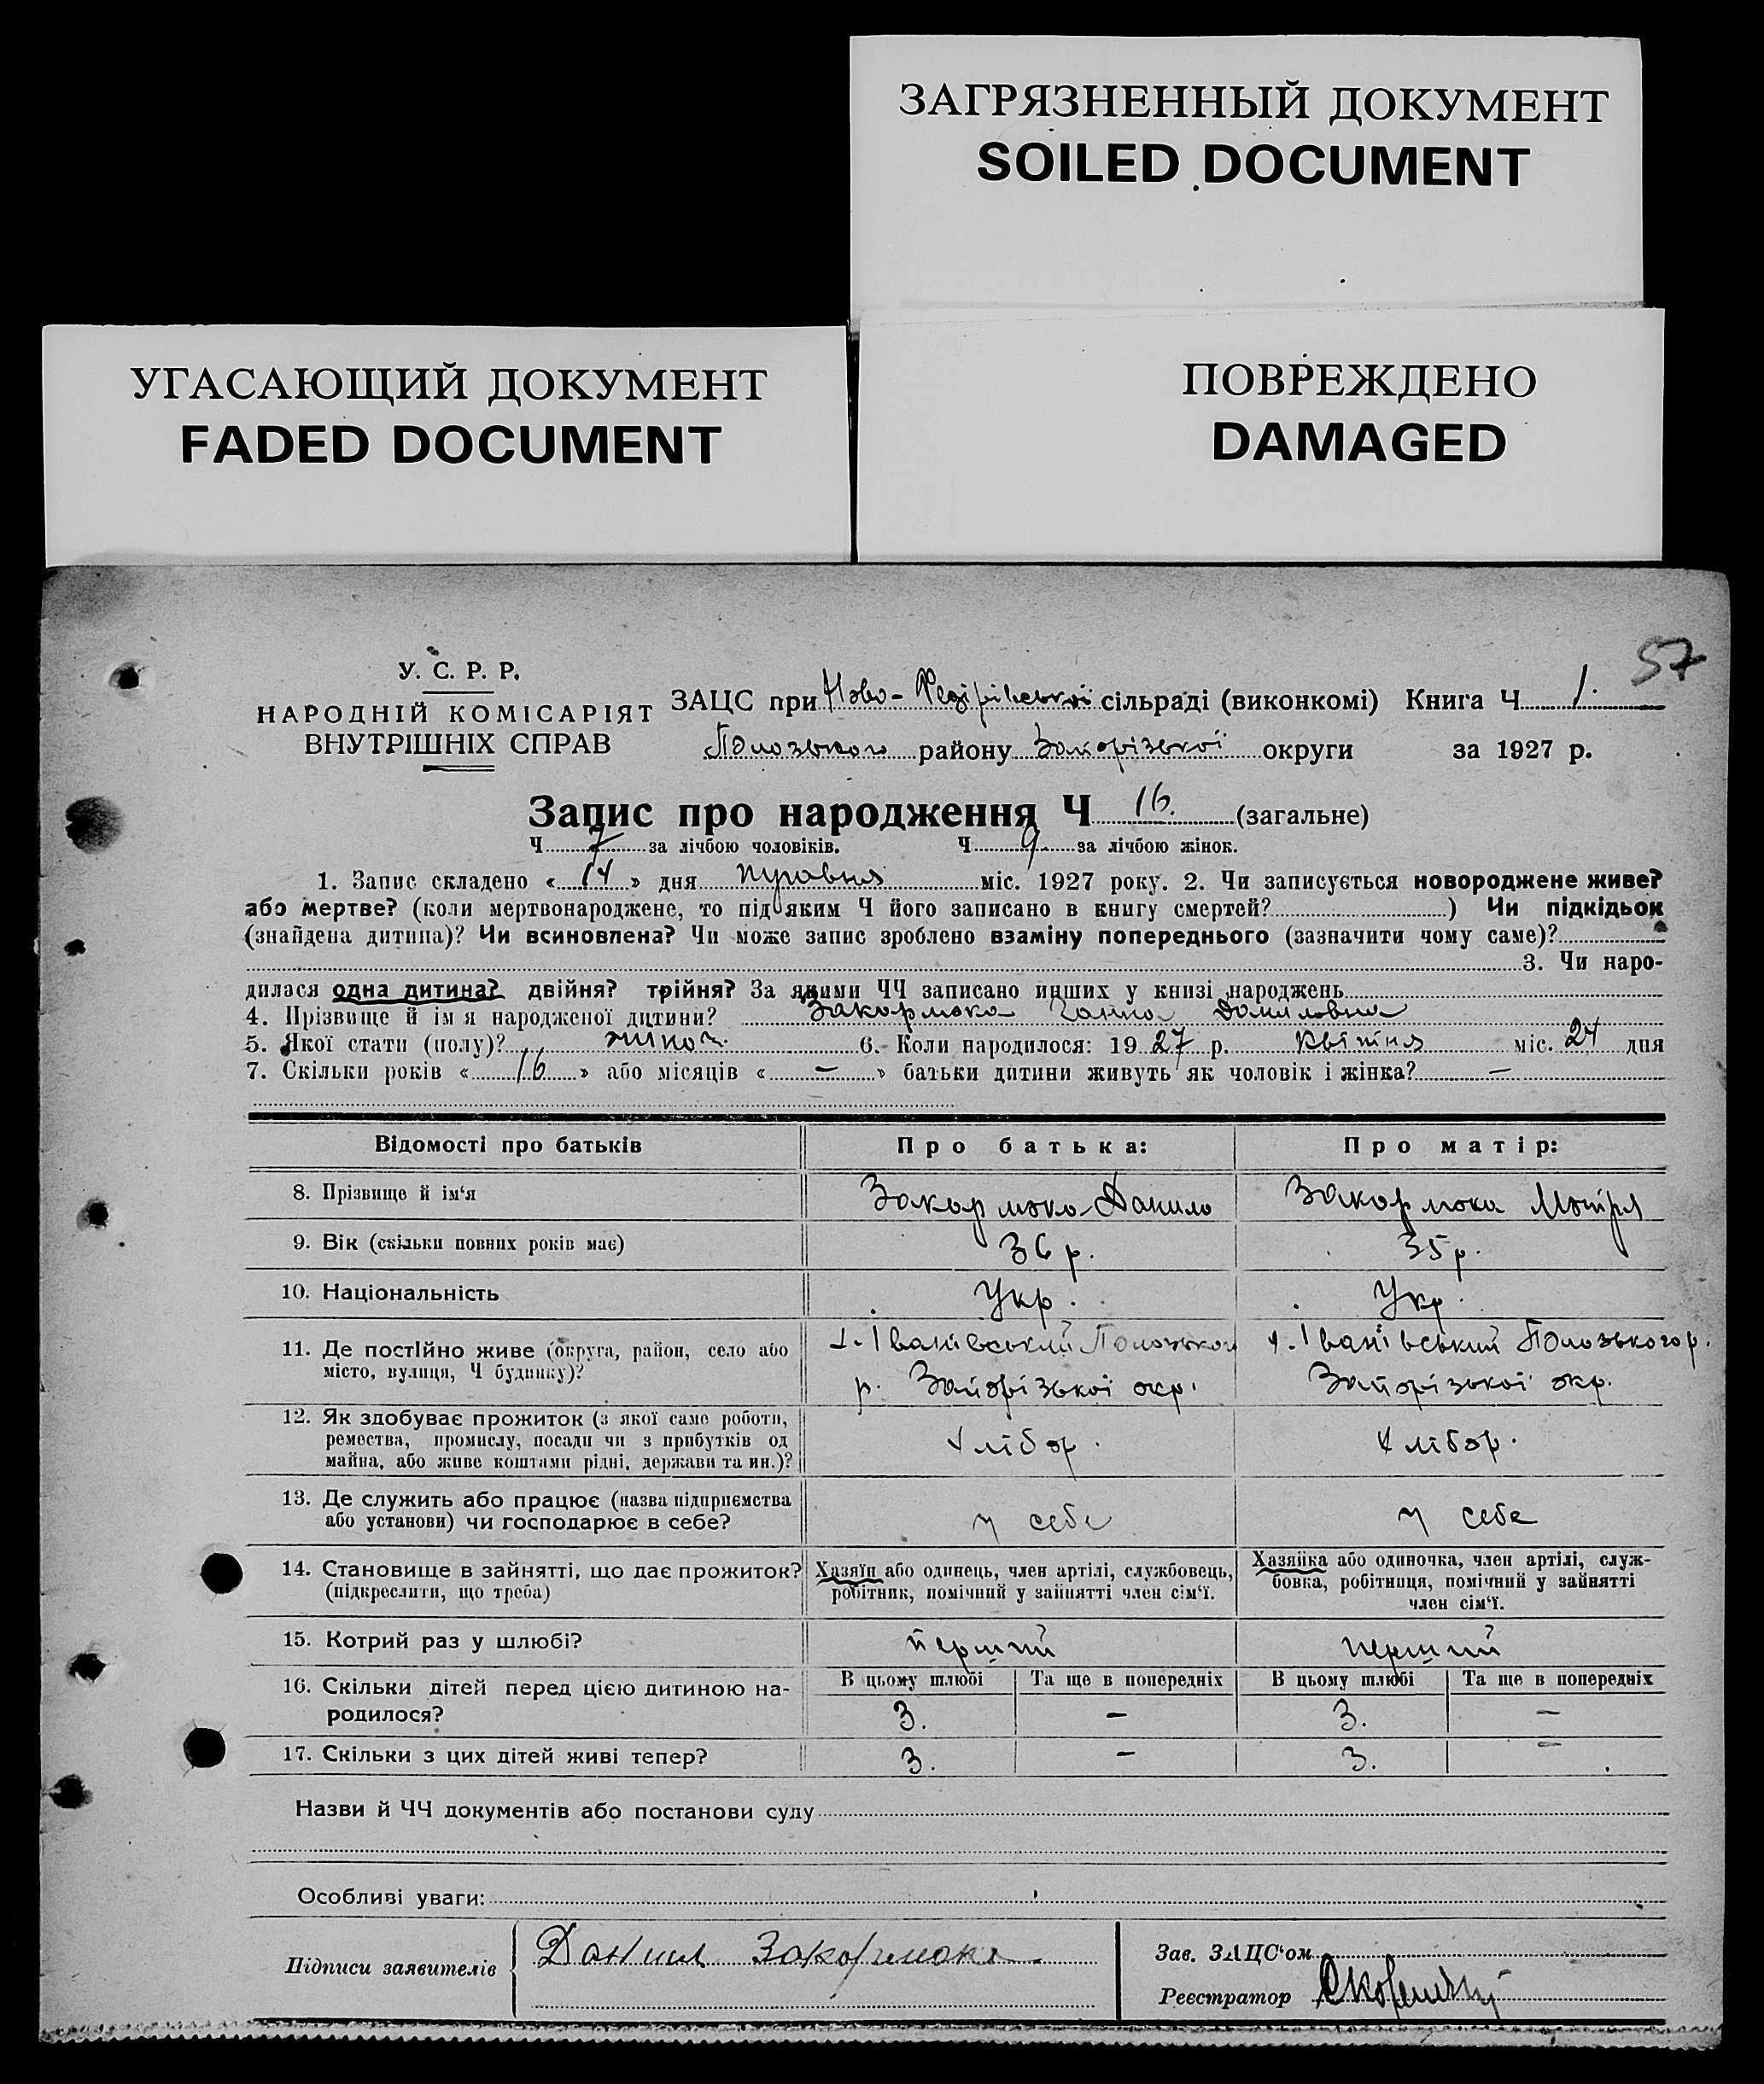 ЗАГРЯЗНЕННЫЙ ДОКУМЕНТ
SOILED DOCUMENT
УГАСАЮЩИЙ ДОКУМЕНТ
FADED DOCUMENT
ПОВРЕЖДЕНО
DAMAGED
57
У. С. Р. Р.
НАРОДНІЙ КОМІСАРІЯТ
ВНУТРІШНІХ СПРАВ
ЗАЦС при Ново- сільраді (виконкомі) Книга Ч 1.
Полозького району Запорізької округи за 1927 р.
Запис про народження Ч 16. (загальне)
Ч 7 за лічбою чоловіків. Ч 9. за лічбою жінок.
1. Запис складено « 14 » дня травня міс. 1927 року. 2. Чи записується новороджене живе?
або мертве? (коли мертвонароджене, то під яким Ч його записано в книгу смертей? ) Чи підкідьок
(знайдена дитина)? Чи всиновлена? Чи може запис зроблено взаміну попереднього (зазначити чому саме)?
3. Чи наро-
дилася одна дитина? двійня? трійня? За якими ЧЧ записано инших у книзі народжень
4. Прізвище й ім'я народженої дитини? Закормока Ганна Даниловна
5. Якої стати (полу)? жіноч. 6. Коли народилося: 19 27 р. квітня міс. 24 дня
7. Скільки років « 16 » або місяців « — » батьки дитини живуть як чоловік і жінка? —
Відомості про батьків Про батька: Про матір:
8. Прізвище й ім'я Закормока Данило Закормока Мотря
9. Вік (скільки повних років має) 36 р. 35 р.
10. Національність Укр. Укр.
11. Де постійно живе (округа, район, село або
місто, вулиця, Ч будинку)?
х. Іванівський Полозького
р. Запорізької окр.
х. Іванівський Полозького р.
Запорізької окр.
12. Як здобуває прожиток (з якої саме роботи,
ремества, промислу, посади чи з прибутків од
майна, або живе коштами рідні, держави та ин.)?
хлібор. хлібор.
13. Де служить або працює (назва підприємства
або установи) чи господарює в себе?
у себе у себе
14. Становище в зайнятті, що дає прожиток?
(підкреслити, що треба)
Хазяїн або одинець, член артілі, службовець,
робітник, помічний у зайнятті член сім'ї.
Хазяйка або одиночка, член артілі, служ-
бовка, робітниця, помічний у зайнятті
член сім'ї.
15. Котрий раз у шлюбі? перший перший
16. Скільки дітей перед цією дитиною на-
родилося?
В цьому шлюбі Та ще в попередніх В цьому шлюбі Та ще в попередніх
3. — 3. —
17. Скільки з цих дітей живі тепер? 3. — 3. —
Назви й ЧЧ документів або постанови суду
Особливі уваги:
Підписи заявителів Данил Закормока
Зав. ЗАЦС'ом
Реєстратор